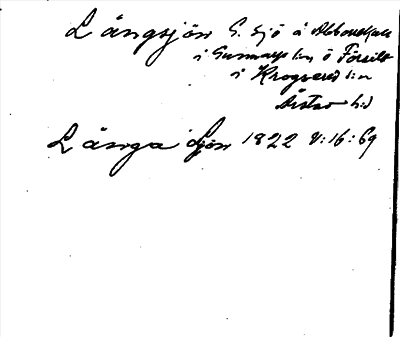 Långsjön S. sjö å Abbouekulle
i Gunnarps sn ö Föreilt
i Krogsered sn
Årstad hd
Långa Sjön 1822 V:16:69